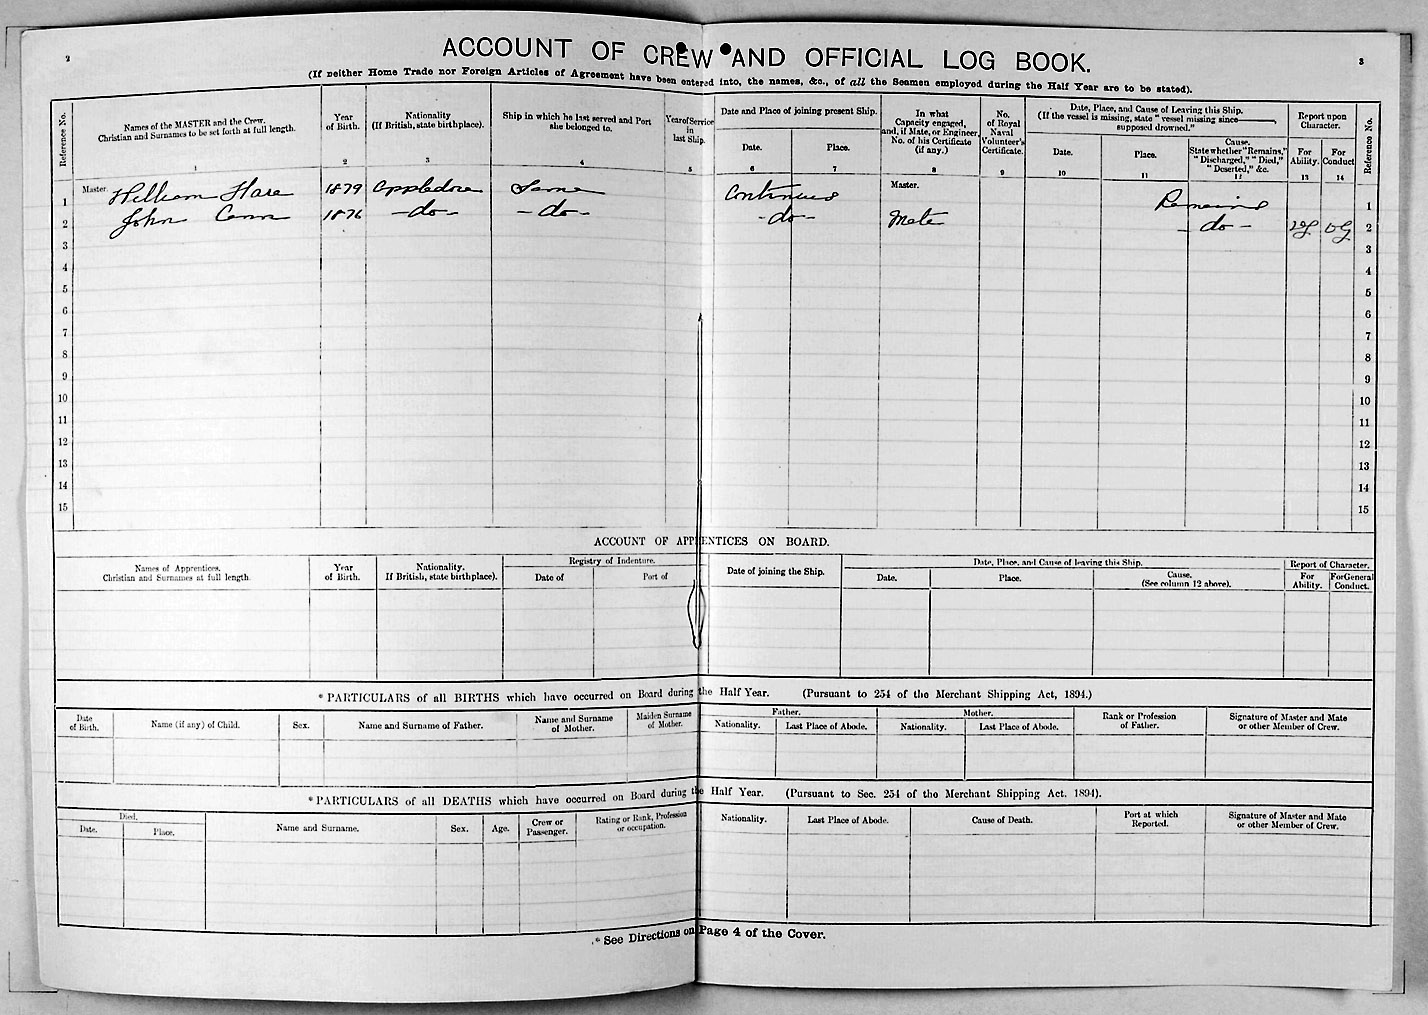 2
ACCOUNT OF CREW AND OFFICIAL LOG BOOK.
3
(If neither Home Trade nor Foreign Articles of Agreement have been entered into, the names, &c., of all the Seamen employed during the Half Year are to be stated).
Reference No.
Names of the MASTER and the Crew.
Christian and Surnames to be set forth at full length.
1
Year
of Birth.
2
Nationality
(If British, state birthplace).
3
Ship in which he last served and Port
she belonged to.
4
Year of Service
in
last Ship.
5
Date and Place of joining present Ship.
Date.
6
Place.
7
In what
Capacity engaged,
and, if Mate, or Engineer,
No. of his Certificate
(if any.)
8
No.
of Royal
Naval
Volunteer's
Certificate.
9
Date, Place, and Cause of Leaving this Ship.
(If the vessel is missing, state "vessel missing since———,
supposed drowned."
Date.
10
Place.
11
Cause.
State whether "Remains,"
"Discharged," "Died,"
"Deserted," &c.
12
Report upon
Character.
For
Ability.
13
For
Conduct
14
Reference No.
1 Master. William Hare 1879 Appledore Same Continues Master. Remains 1
2 John Cann 1876 -do- -do- -do- Mate -do- VG VG 2
3 3
4 4
5 5
6 6
7 7
8 8
9 9
10 10
11 11
12 12
13 13
14 14
15 15
ACCOUNT OF APPRENTICES ON BOARD.
Names of Apprentices.
Christian and Surnames at full length.
Year
of Birth.
Nationality.
If British, state birthplace).
Registry of Indenture.
Date of
Port of
Date of joining the Ship.
Date, Place, and Cause of leaving this Ship.
Date.
Place.
Cause.
(See column 12 above).
Report of Character.
For
Ability.
For General
Conduct.
* PARTICULARS of all BIRTHS which have occurred on Board during the Half Year. (Pursuant to 254 of the Merchant Shipping Act, 1894.)
Date
of Birth.
Name (if any) of Child.
Sex.
Name and Surname of Father.
Name and Surname
of Mother.
Maiden Surname
of Mother.
Father.
Nationality.
Last Place of Abode.
Mother.
Nationality.
Last Place of Abode.
Rank or Profession
of Father.
Signature of Master and Mate
or other Member of Crew.
* PARTICULARS of all DEATHS which have occurred on Board during the Half Year. (Pursuant to Sec. 254 of the Merchant Shipping Act. 1894).
Died.
Date.
Place.
Name and Surname.
Sex.
Age.
Crew or
Passenger.
Rating or Rank, Profession
or occupation.
Nationality.
Last Place of Abode.
Cause of Death.
Port at which
Reported.
Signature of Master and Mate
or other Member of Crew.
* See Directions on Page 4 of the Cover.